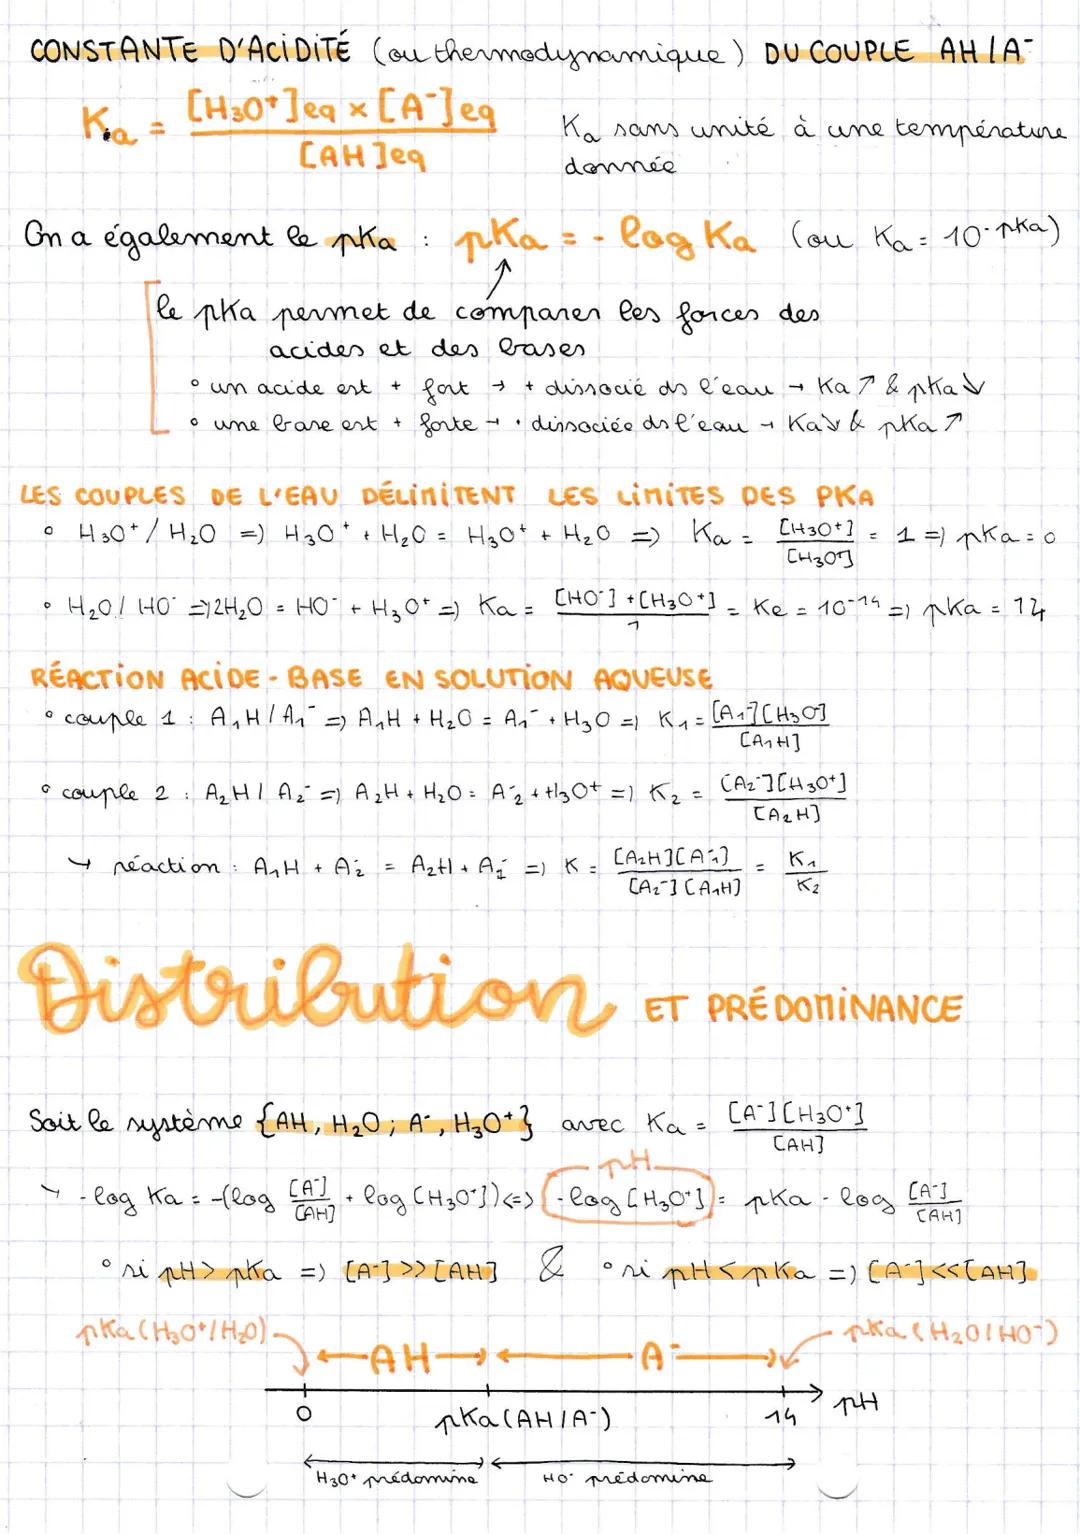 CONSTANTE D'ACIDITÉ (ou thermodynamique) DU COUPLE AH/A⁻
Ka = [H3O⁺]eq × [A⁻]eq / [AH]eq
Ka sans unité à une température
donnée
On a également le pKa : pKa = - log Ka (ou Ka = 10⁻ᵖᴷᵃ)
le pKa permet de comparer les forces des
acides et des bases
° un acide est + fort → + dissocié ds l'eau → Ka ↗ & pKa ↘
° une base est + forte → · dissociée ds l'eau → Ka ↘ & pKa ↗
LES COUPLES DE L'EAU DÉLIMITENT LES LIMITES DES PKA
° H3O⁺/H2O => H3O⁺ + H2O = H3O⁺ + H2O => Ka = [H3O⁺]/[H3O⁺] = 1 => pKa = 0
° H2O/HO⁻ => 2H2O = HO⁻ + H3O⁺ => Ka = [HO⁻] + [H3O⁺]/1 = Ke = 10⁻¹⁴ => pKa = 14
RÉACTION ACIDE - BASE EN SOLUTION AQUEUSE
° couple 1 : A1H/A1⁻ => A1H + H2O = A1⁻ + H3O => K1 = [A1⁻][H3O]/[A1H]
° couple 2 : A2H/A2⁻ => A2H + H2O = A⁻2 + H3O⁺ => K2 = [A2⁻][H3O⁺]/[A2H]
↳ réaction : A1H + A⁻2 = A2H + A⁻1 => K = [A2H][A⁻1]/[A2⁻][A1H] = K1/K2
Distribution ET PRÉDOMINANCE
Soit le système {AH, H2O ; A⁻, H3O⁺} avec Ka = [A⁻][H3O⁺]/[AH]
pH
↳ - log Ka = -(log [A⁻]/[AH] + log [H3O⁺]) <=> - log [H3O⁺] = pKa - log [A⁻]/[AH]
° si pH > pKa => [A⁻] >> [AH] & ° si pH < pKa => [A⁻] << [AH]
pKa (H3O⁺/H2O) pKa (H2O/HO⁻)
AH A⁻
0 pKa (AH/A⁻) 14 pH
H3O⁺ prédomine HO⁻ prédomine